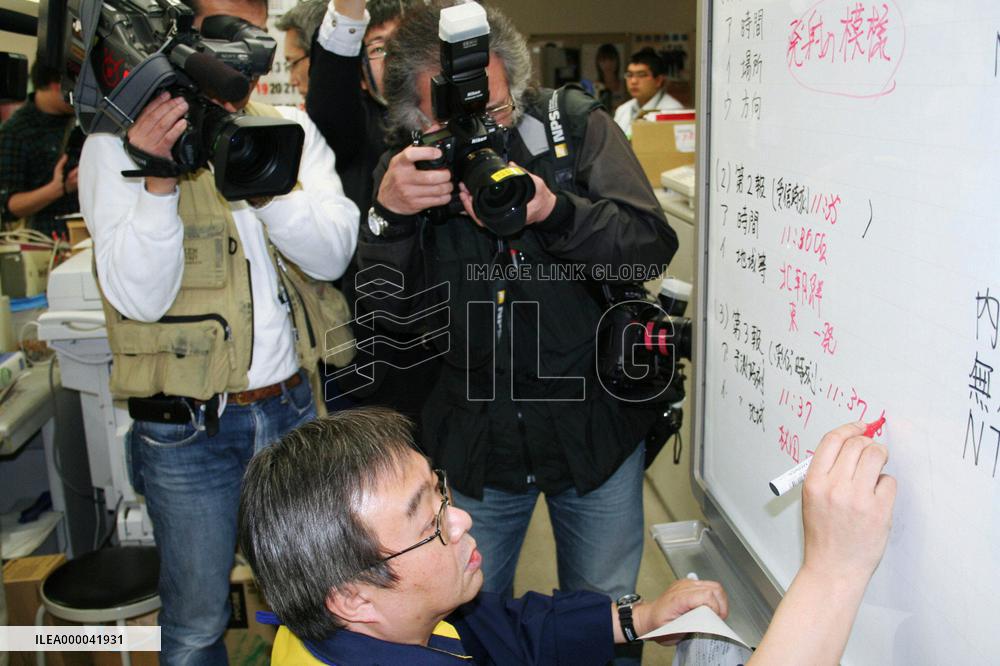 発射の模様
ア 時間
イ 場所
ウ 方向
(2) 第2報 (受信時刻 11:35 )
ア 時間 11:30
イ 地域等 北朝鮮
東 一発
(3) 第3報 (受信時刻): 11:37
ア 予測時刻 11:37
イ 地域 秋田
内
無
NT
NPS
Nikon
Nikon
IMAGE LINK GLOBAL
ILG
ILEA000041931